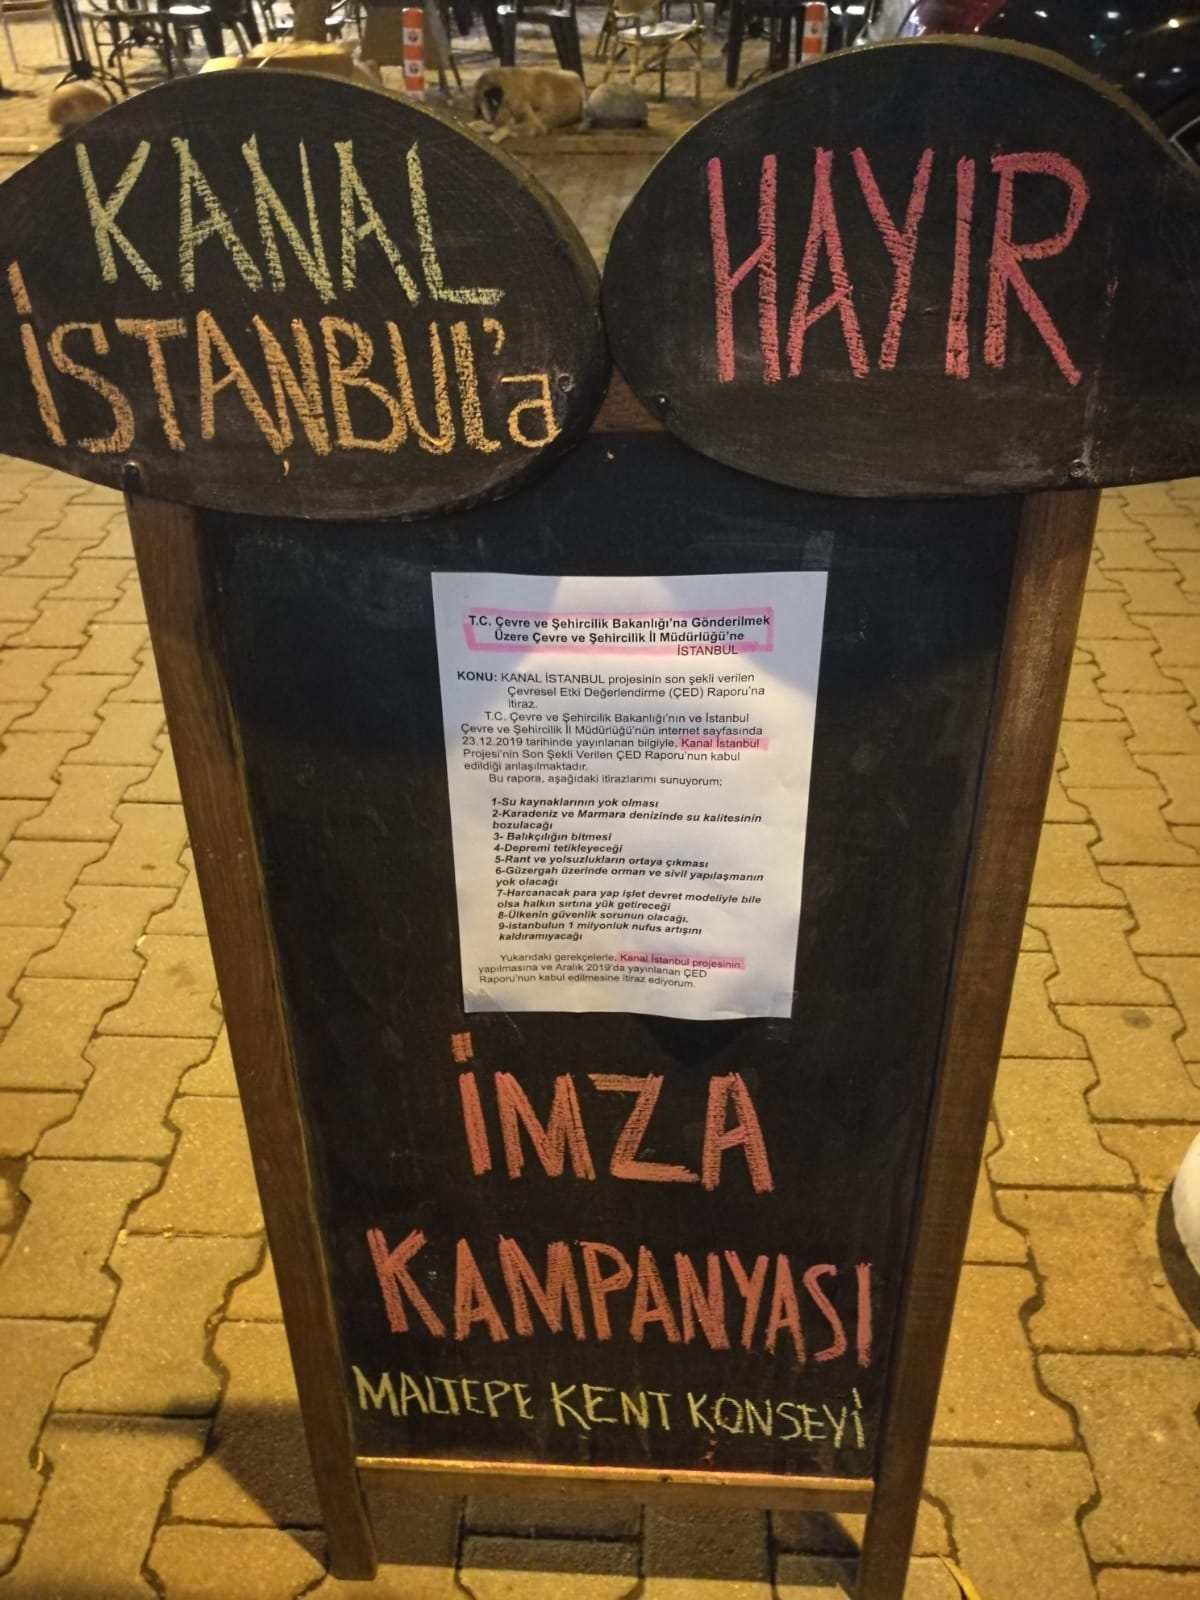 KANAL
İSTANBUL'a
HAYIR
T.C. Çevre ve Şehircilik Bakanlığı'na Gönderilmek
Üzere Çevre ve Şehircilik İl Müdürlüğü'ne
İSTANBUL
KONU: KANAL İSTANBUL projesinin son şekli verilen
Çevresel Etki Değerlendirme (ÇED) Raporu'na
itiraz.
T.C. Çevre ve Şehircilik Bakanlığı'nın ve İstanbul
Çevre ve Şehircilik İl Müdürlüğü'nün internet sayfasında
23.12.2019 tarihinde yayınlanan bilgiyle, Kanal İstanbul
Projesi'nin Son Şekli Verilen ÇED Raporu'nun kabul
edildiği anlaşılmaktadır.
Bu rapora, aşağıdaki itirazlarımı sunuyorum;
1-Su kaynaklarının yok olması
2-Karadeniz ve Marmara denizinde su kalitesinin
bozulacağı
3- Balıkçılığın bitmesi
4-Depremi tetikleyeceği
5-Rant ve yolsuzlukların ortaya çıkması
6-Güzergah üzerinde orman ve sivil yapılaşmanın
yok olacağı
7-Harcanacak para yap işlet devret modeliyle bile
olsa halkın sırtına yük getireceği
8-Ülkenin güvenlik sorunun olacağı.
9-istanbulun 1 milyonluk nufus artışını
kaldıramıyacağı
Yukarıdaki gerekçelerle, Kanal İstanbul projesinin
yapılmasına ve Aralık 2019'da yayınlanan ÇED
Raporu'nun kabul edilmesine itiraz ediyorum.
İMZA
KAMPANYASI
MALTEPE KENT KONSEYİ